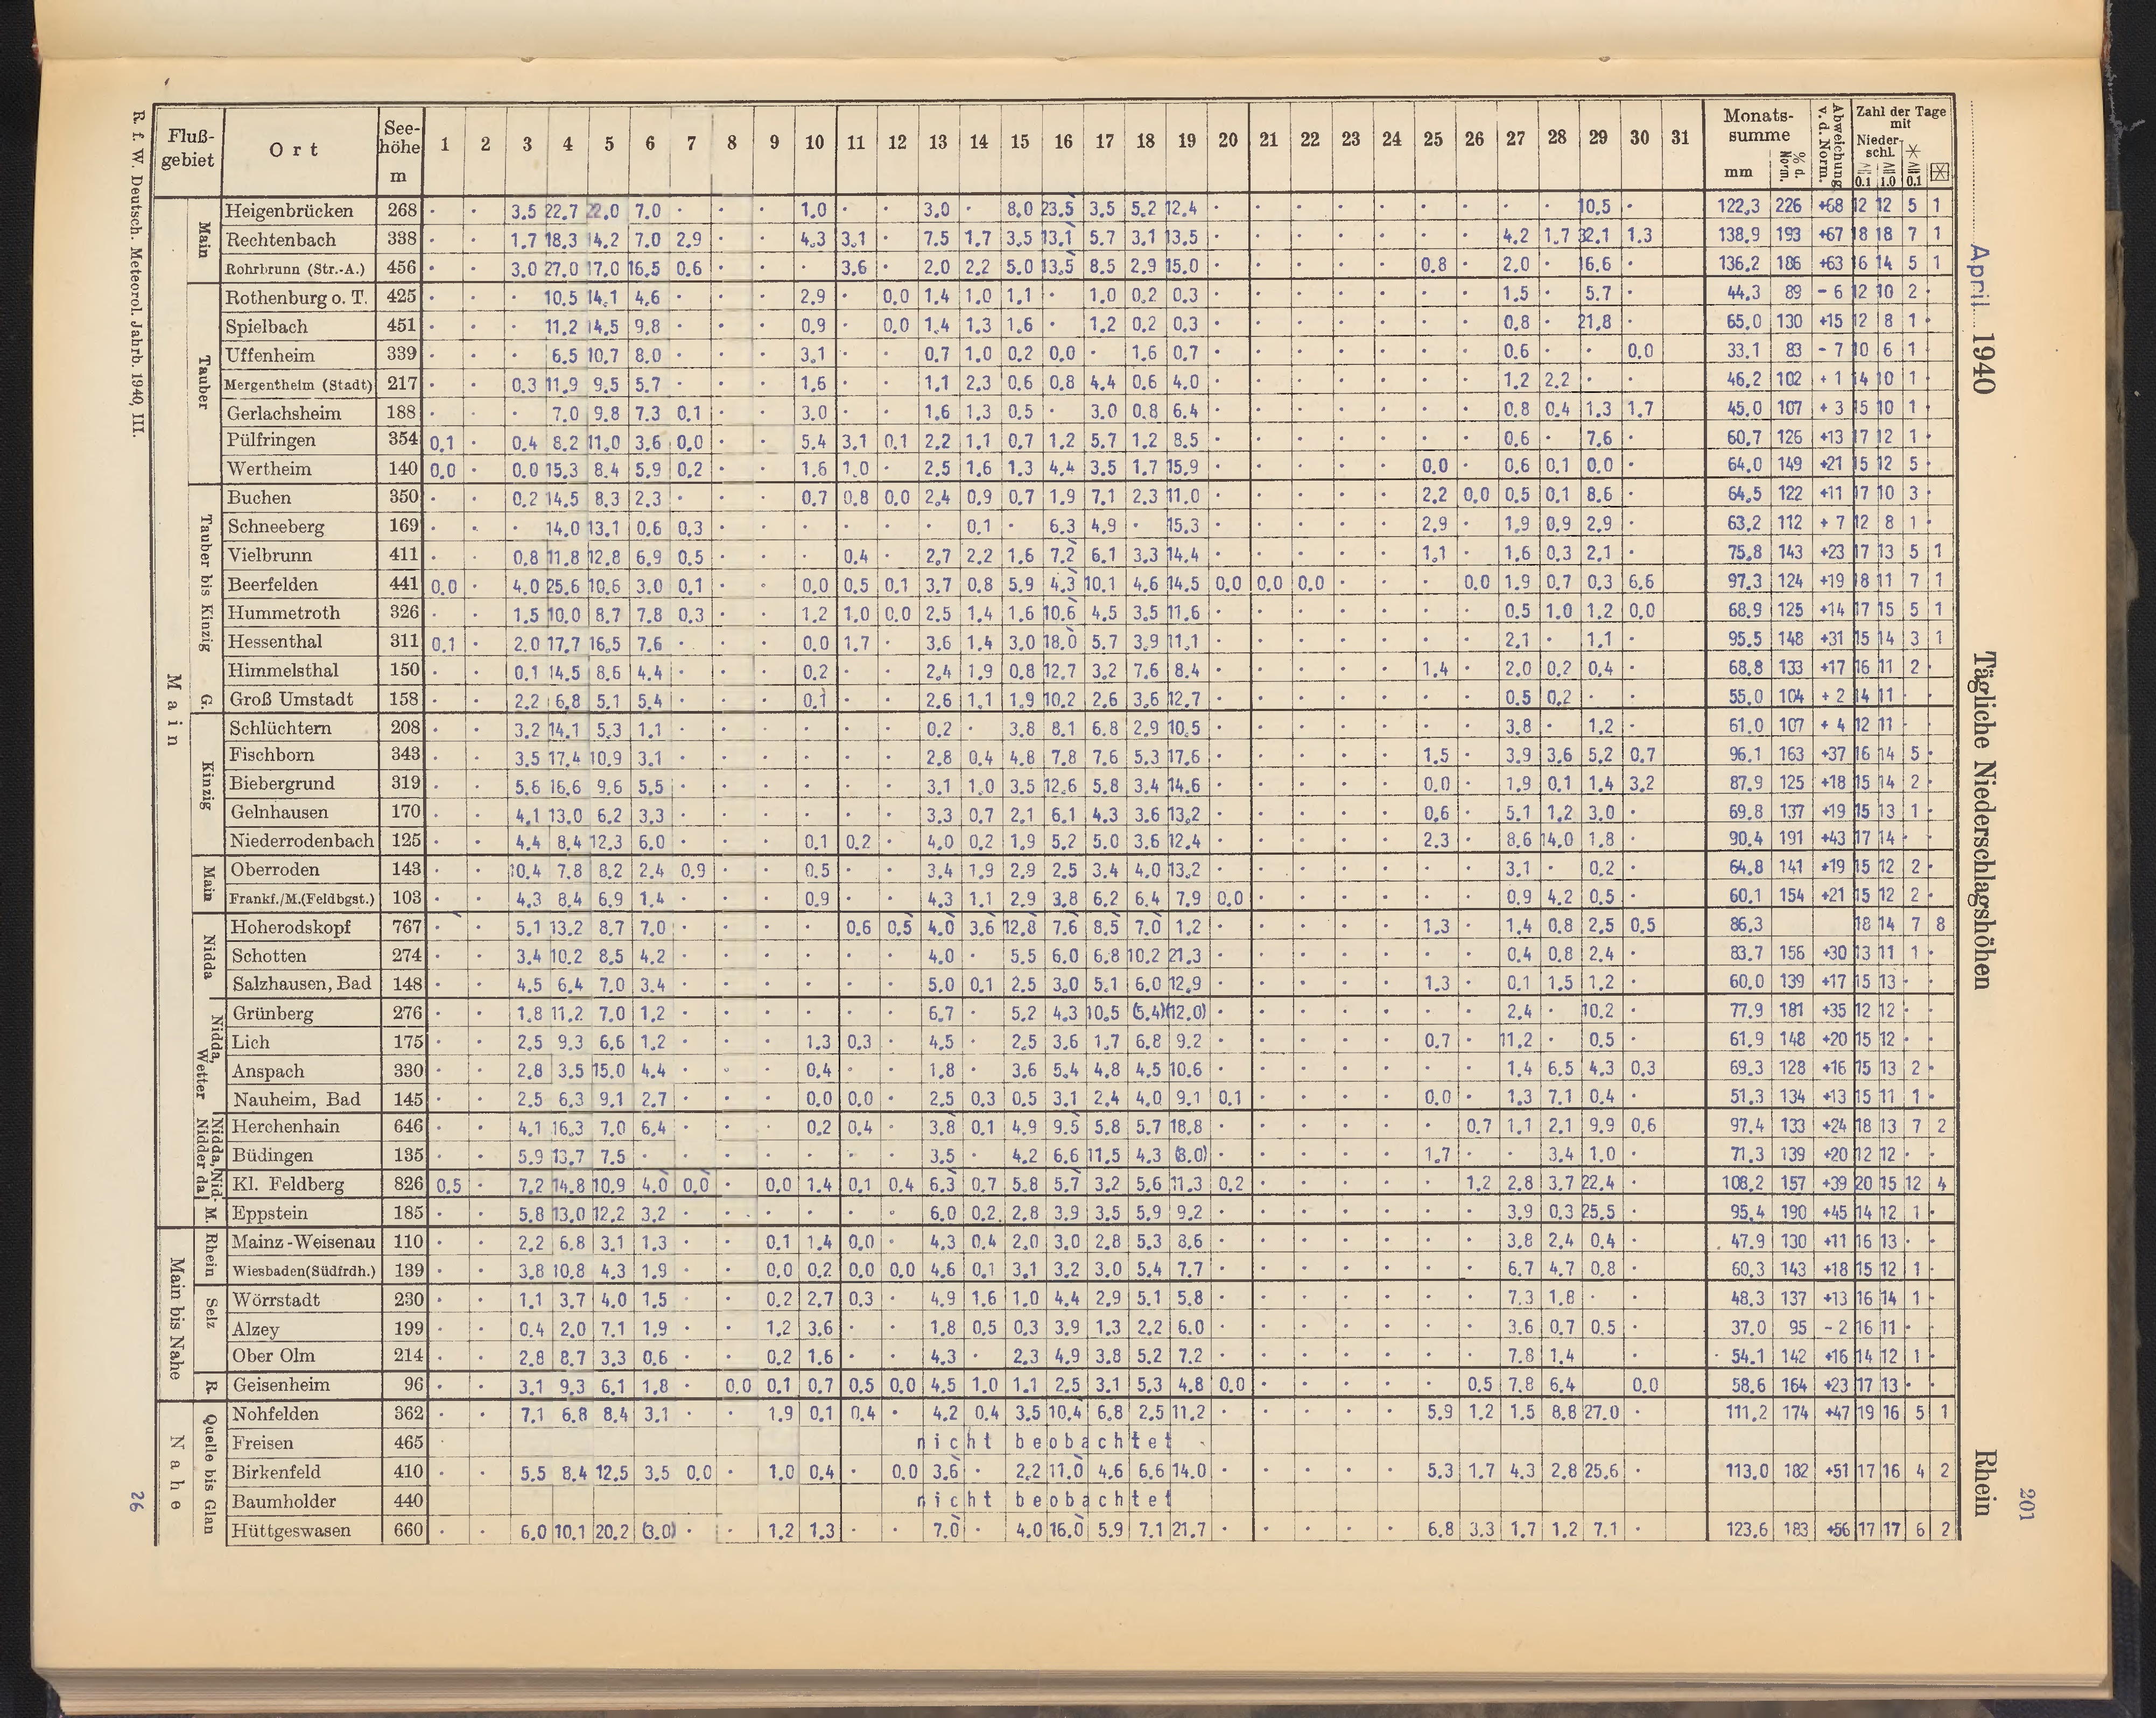 April 1940 Tägliche Niederschlagshöhen Rhein 201
Fluß-gebiet | Ort | See-höhe m | 1 | 2 | 3 | 4 | 5 | 6 | 7 | 8 | 9 | 10 | 11 | 12 | 13 | 14 | 15 | 16 | 17 | 18 | 19 | 20 | 21 | 22 | 23 | 24 | 25 | 26 | 27 | 28 | 29 | 30 | 31 | Monats-summe mm | % d. Norm. | Abweichung v. d. Norm. | Zahl der Tage mit Nieder-schl. ≧ 0.1 | ≧ 1.0 | ≧ 0.1
Main
Main
Heigenbrücken 268 . . 3.5 22.7 22.0 7.0 . . . 1.0 . . 3.0 . 8.0 23.5 3.5 5.2 12.4 . . . . . . . . . 10.5 . 122.3 226 +68 12 12 5 1
Rechtenbach 338 . . 1.7 18.3 14.2 7.0 2.9 . . 4.3 3.1 . 7.5 1.7 3.5 13.1 5.7 3.1 13.5 . . . . . . . 4.2 1.7 32.1 1.3 138.9 193 +67 18 18 7 1
Rohrbrunn (Str.-A.) 456 . . 3.0 27.0 17.0 16.5 0.6 . . . 3.6 . 2.0 2.2 5.0 13.5 8.5 2.9 15.0 . . . . . 0.8 . 2.0 . 16.6 . 136.2 186 +63 16 14 5 1
Tauber
Rothenburg o. T. 425 . . . 10.5 14.1 4.6 . . . 2.9 . 0.0 1.4 1.0 1.1 . 1.0 0.2 0.3 . . . . . . . 1.5 . 5.7 . 44.3 89 -6 12 10 2 .
Spielbach 451 . . . 11.2 14.5 9.8 . . . 0.9 . 0.0 1.4 1.3 1.6 . 1.2 0.2 0.3 . . . . . . . 0.8 . 21.8 . 65.0 130 +15 12 8 1 .
Uffenheim 339 . . . 6.5 10.7 8.0 . . . 3.1 . . 0.7 1.0 0.2 0.0 . 1.6 0.7 . . . . . . . 0.6 . . 0.0 33.1 83 -7 10 6 1 .
Mergentheim (Stadt) 217 . . 0.3 11.9 9.5 5.7 . . . 1.6 . . 1.1 2.3 0.6 0.8 4.4 0.6 4.0 . . . . . . . 1.2 2.2 . . 46.2 102 +1 14 10 1 .
Gerlachsheim 188 . . . 7.0 9.8 7.3 0.1 . . 3.0 . . 1.6 1.3 0.5 . 3.0 0.8 6.4 . . . . . . . 0.8 0.4 1.3 1.7 45.0 107 +3 15 10 1 .
Pülfringen 354 0.1 . 0.4 8.2 11.0 3.6 0.0 . . 5.4 3.1 0.1 2.2 1.1 0.7 1.2 5.7 1.2 8.5 . . . . . . . 0.6 . 7.6 . 60.7 126 +13 17 12 1 .
Wertheim 140 0.0 . 0.0 15.3 8.4 5.9 0.2 . . 1.6 1.0 . 2.5 1.6 1.3 4.4 3.5 1.7 15.9 . . . . . 0.0 . 0.6 0.1 0.0 . 64.0 149 +21 15 12 5 .
Tauber bis Kinzig
Buchen 350 . . 0.2 14.5 8.3 2.3 . . . 0.7 0.8 0.0 2.4 0.9 0.7 1.9 7.1 2.3 11.0 . . . . . 2.2 0.0 0.5 0.1 8.6 . 64.5 122 +11 17 10 3 .
Schneeberg 169 . . . 14.0 13.1 0.6 0.3 . . . . . . 0.1 . 6.3 4.9 . 15.3 . . . . . 2.9 . 1.9 0.9 2.9 . 63.2 112 +7 12 8 1 .
Vielbrunn 411 . . 0.8 11.8 12.8 6.9 0.5 . . . 0.4 . 2.7 2.2 1.6 7.2 6.1 3.3 14.4 . . . . . 1.1 . 1.6 0.3 2.1 . 75.8 143 +23 17 13 5 1
Beerfelden 441 0.0 . 4.0 25.6 10.6 3.0 0.1 . . 0.0 0.5 0.1 3.7 0.8 5.9 4.3 10.1 4.6 14.5 0.0 0.0 0.0 . . . 0.0 1.9 0.7 0.3 6.6 97.3 124 +19 18 11 7 1
Hummetroth 326 . . 1.5 10.0 8.7 7.8 0.3 . . 1.2 1.0 0.0 2.5 1.4 1.6 10.6 4.5 3.5 11.6 . . . . . . . 0.5 1.0 1.2 0.0 68.9 125 +14 17 15 5 1
Hessenthal 311 0.1 . 2.0 17.7 16.5 7.6 . . . 0.0 1.7 . 3.6 1.4 3.0 18.0 5.7 3.9 11.1 . . . . . . . 2.1 . 1.1 . 95.5 148 +31 15 14 3 1
Himmelsthal 150 . . 0.1 14.5 8.6 4.4 . . . 0.2 . . 2.4 1.9 0.8 12.7 3.2 7.6 8.4 . . . . . 1.4 . 2.0 0.2 0.4 . 68.8 133 +17 16 11 2 .
G.
Groß Umstadt 158 . . 2.2 6.8 5.1 5.4 . . . 0.1 . . 2.6 1.1 1.9 10.2 2.6 3.6 12.7 . . . . . . . 0.5 0.2 . . 55.0 104 +2 14 11 . .
Kinzig
Schlüchtern 208 . . 3.2 14.1 5.3 1.1 . . . . . . 0.2 . 3.8 8.1 6.8 2.9 10.5 . . . . . . . 3.8 . 1.2 . 61.0 107 +4 12 11 . .
Fischborn 343 . . 3.5 17.4 10.9 3.1 . . . . . . 2.8 0.4 4.8 7.8 7.6 5.3 17.6 . . . . . 1.5 . 3.9 3.6 5.2 0.7 96.1 163 +37 16 14 5 .
Biebergrund 319 . . 5.6 16.6 9.6 5.5 . . . . . . 3.1 1.0 3.5 12.6 5.8 3.4 14.6 . . . . . 0.0 . 1.9 0.1 1.4 3.2 87.9 125 +18 15 14 2 .
Gelnhausen 170 . . 4.1 13.0 6.2 3.3 . . . . . . 3.3 0.7 2.1 6.1 4.3 3.6 13.2 . . . . . 0.6 . 5.1 1.2 3.0 . 69.8 137 +19 15 13 1 .
Niederrodenbach 125 . . 4.4 8.4 12.3 6.0 . . . 0.1 0.2 . 4.0 0.2 1.9 5.2 5.0 3.6 12.4 . . . . . 2.3 . 8.6 14.0 1.8 . 90.4 191 +43 17 14 . .
Main
Oberroden 143 . . 10.4 7.8 8.2 2.4 0.9 . . 0.5 . . 3.4 1.9 2.9 2.5 3.4 4.0 13.2 . . . . . . . 3.1 . 0.2 . 64.8 141 +19 15 12 2 .
Frankf./M.(Feldbgst.) 103 . . 4.3 8.4 6.9 1.4 . . . 0.9 . . 4.3 1.1 2.9 3.8 6.2 6.4 7.9 0.0 . . . . . . 0.9 4.2 0.5 . 60.1 154 +21 15 12 2 .
Nidda
Hoherodskopf 767 . . 5.1 13.2 8.7 7.0 . . . . 0.6 0.5 4.0 3.6 12.8 7.6 8.5 7.0 1.2 . . . . . 1.3 . 1.4 0.8 2.5 0.5 86.3 18 14 7 8
Schotten 274 . . 3.4 10.2 8.5 4.2 . . . . . . 4.0 . 5.5 6.0 6.8 10.2 21.3 . . . . . . . 0.4 0.8 2.4 . 83.7 156 +30 13 11 1 .
Salzhausen, Bad 148 . . 4.5 6.4 7.0 3.4 . . . . . . 5.0 0.1 2.5 3.0 5.1 6.0 12.9 . . . . . 1.3 . 0.1 1.5 1.2 . 60.0 139 +17 15 13 . .
Nidda, Wetter
Grünberg 276 . . 1.8 11.2 7.0 1.2 . . . . . . 6.7 . 5.2 4.3 10.5 (5.4) (12.0) . . . . . . . 2.4 . 10.2 . 77.9 181 +35 12 12 . .
Lich 175 . . 2.5 9.3 6.6 1.2 . . . 1.3 0.3 . 4.5 . 2.5 3.6 1.7 6.8 9.2 . . . . . 0.7 . 11.2 . 0.5 . 61.9 148 +20 15 12 . .
Anspach 330 . . 2.8 3.5 15.0 4.4 . . . 0.4 . . 1.8 . 3.6 5.4 4.8 4.5 10.6 . . . . . . . 1.4 6.5 4.3 0.3 69.3 128 +16 15 13 2 .
Nauheim, Bad 145 . . 2.5 6.3 9.1 2.7 . . . 0.0 0.0 . 2.5 0.3 0.5 3.1 2.4 4.0 9.1 0.1 . . . . 0.0 . 1.3 7.1 0.4 . 51.3 134 +13 15 11 1 .
Nidda, Nidder
Herchenhain 646 . . 4.1 16.3 7.0 6.4 . . . 0.2 0.4 . 3.8 0.1 4.9 9.5 5.8 5.7 18.8 . . . . . . 0.7 1.1 2.1 9.9 0.6 97.4 133 +24 18 13 7 2
Büdingen 135 . . 5.9 13.7 7.5 . . . . . . . 3.5 . 4.2 6.6 11.5 4.3 (8.0) . . . . . 1.7 . . 3.4 1.0 . 71.3 139 +20 12 12 . .
Nidda
Kl. Feldberg 826 0.5 . 7.2 14.8 10.9 4.0 0.0 . 0.0 1.4 0.1 0.4 6.3 0.7 5.8 5.7 3.2 5.6 11.3 0.2 . . . . . 1.2 2.8 3.7 22.4 . 108.2 157 +39 20 15 12 4
M.
Eppstein 185 . . 5.8 13.0 12.2 3.2 . . . . . . 6.0 0.2 2.8 3.9 3.5 5.9 9.2 . . . . . . . 3.9 0.3 25.5 . 95.4 190 +45 14 12 1 .
Main bis Nahe
Rhein
Mainz-Weisenau 110 . . 2.2 6.8 3.1 1.3 . . 0.1 1.4 0.0 . 4.3 0.4 2.0 3.0 2.8 5.3 8.6 . . . . . . . 3.8 2.4 0.4 . 47.9 130 +11 16 13 . .
Wiesbaden(Südfrdh.) 139 . . 3.8 10.8 4.3 1.9 . . 0.0 0.2 0.0 0.0 4.6 0.1 3.1 3.2 3.0 5.4 7.7 . . . . . . . 6.7 4.7 0.8 . 60.3 143 +18 15 12 1 .
Selz
Wörrstadt 230 . . 1.1 3.7 4.0 1.5 . . 0.2 2.7 0.3 . 4.9 1.6 1.0 4.4 2.9 5.1 5.8 . . . . . . . 7.3 1.8 . . 48.3 137 +13 16 14 1 .
Alzey 199 . . 0.4 2.0 7.1 1.9 . . 1.2 3.6 . . 1.8 0.5 0.3 3.9 1.3 2.2 6.0 . . . . . . . 3.6 0.7 0.5 . 37.0 95 -2 16 11 . .
Ober Olm 214 . . 2.8 8.7 3.3 0.6 . . 0.2 1.6 . . 4.3 . 2.3 4.9 3.8 5.2 7.2 . . . . . . . 7.8 1.4 . 54.1 142 +16 14 12 1 .
R.
Geisenheim 96 . . 3.1 9.3 6.1 1.8 . 0.0 0.1 0.7 0.5 0.0 4.5 1.0 1.1 2.5 3.1 5.3 4.8 0.0 . . . . . 0.5 7.8 6.4 0.0 58.6 164 +23 17 13 . .
Nahe
Quelle bis Glan
Nohfelden 362 . . 7.1 6.8 8.4 3.1 . . 1.9 0.1 0.4 . 4.2 0.4 3.5 10.4 6.8 2.5 11.2 . . . . . 5.9 1.2 1.5 8.8 27.0 . 111.2 174 +47 19 16 5 1
Freisen 465 nicht beobachtet
Birkenfeld 410 . . 5.5 8.4 12.5 3.5 0.0 . 1.0 0.4 . 0.0 3.6 . 2.2 11.0 4.6 6.6 14.0 . . . . . 5.3 1.7 4.3 2.8 25.6 . 113.0 182 +51 17 16 4 2
Baumholder 440 nicht beobachtet
Hüttgeswasen 660 . . 6.0 10.1 20.2 (3.0) . . 1.2 1.3 . . 7.0 . 4.0 16.0 5.9 7.1 21.7 . . . . . 6.8 3.3 1.7 1.2 7.1 . 123.6 183 +56 17 17 6 2
R. f. W. Deutsch. Meteorol. Jahrb. 1940, III.
26